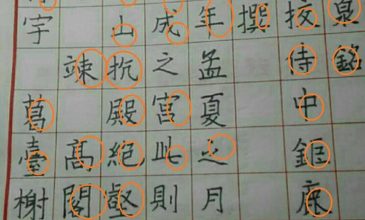 泉銘
挍侍中鉅鹿
撰
年孟夏之月
成之宮此則
山抗殿絕壑
竦高閣
宇葛臺榭